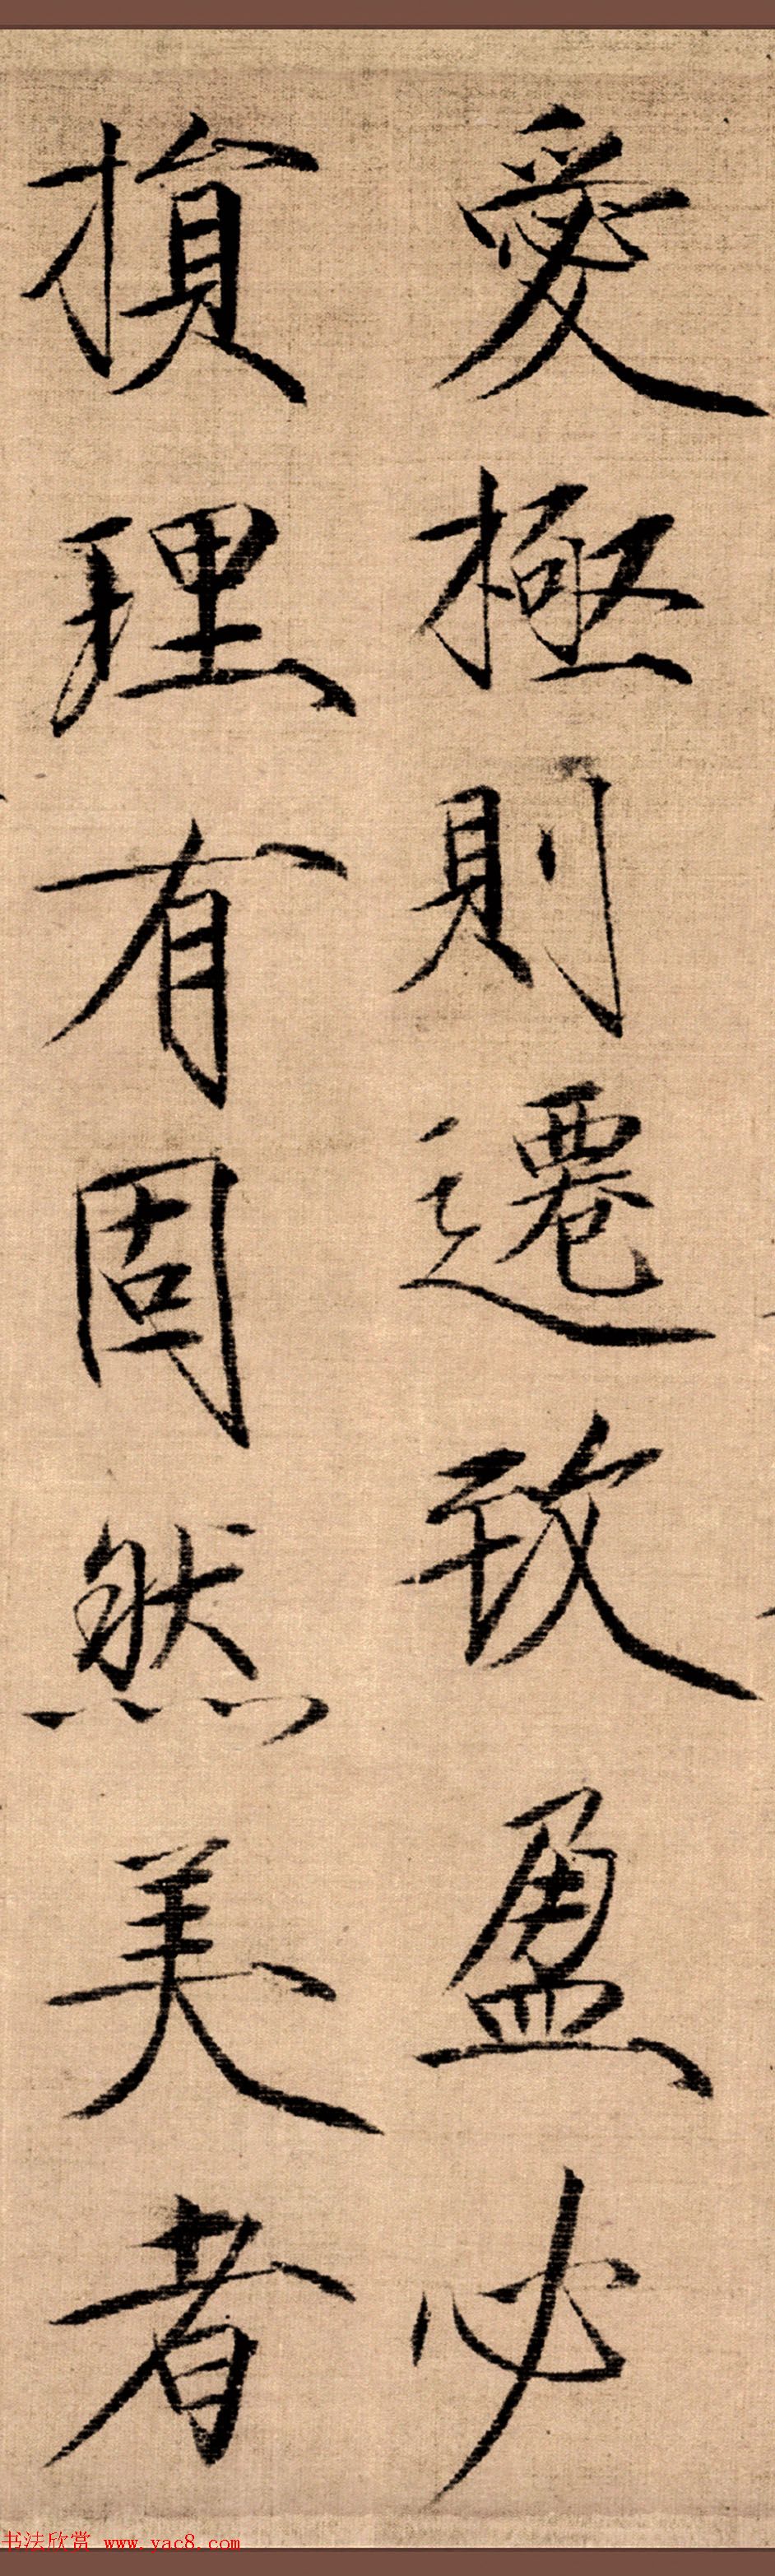 愛極則遷致盈必
損理有固然美者
书法欣赏 www.yac8.com